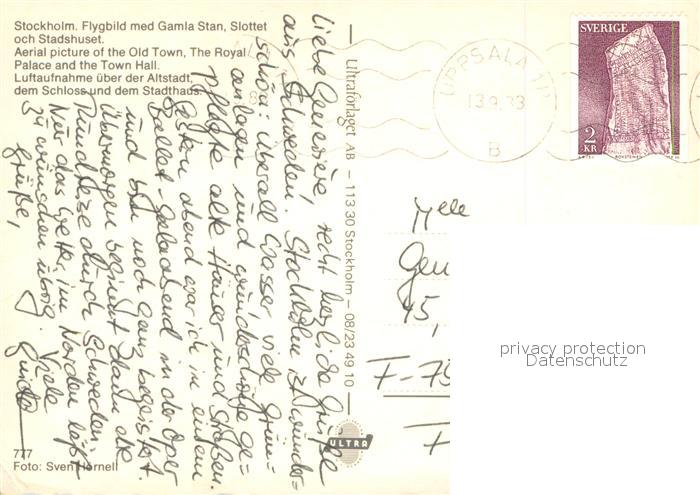 Stockholm. Flygbild med Gamla Stan, Slottet
och Stadshuset.
Aerial picture of the Old Town, The Royal
Palace and the Town Hall.
Luftaufnahme über der Altstadt,
dem Schloss und dem Stadthaus.
Liebe Geneviève, recht herzliche Grüße
aus Schweden. Stockholm ist wunder=
schön: überall Wasser, viele Grün=
anlagen und wunderschöne ge=
pflegte alte Häuser und Straßen.
Gestern abend war ich in einem
Ballet-Galaabend in der Oper
und bin noch ganz begeistert.
Übermorgen beginnt dann die
Rundreise durch Schweden.
Nur das Wetter im Norden läßt
zu wünschen übrig. Viele
Grüße,
Guido
777
Foto: Sven Hörnell
Ultraförlaget AB – 113 30 Stockholm – 08/23 49 10
ULTRA
UPPSALA 1
13.9.83
B
SVERIGE
2
KR
ROKSTENEN
Melle
Gen
45,
F-75
F
privacy protection
Datenschutz